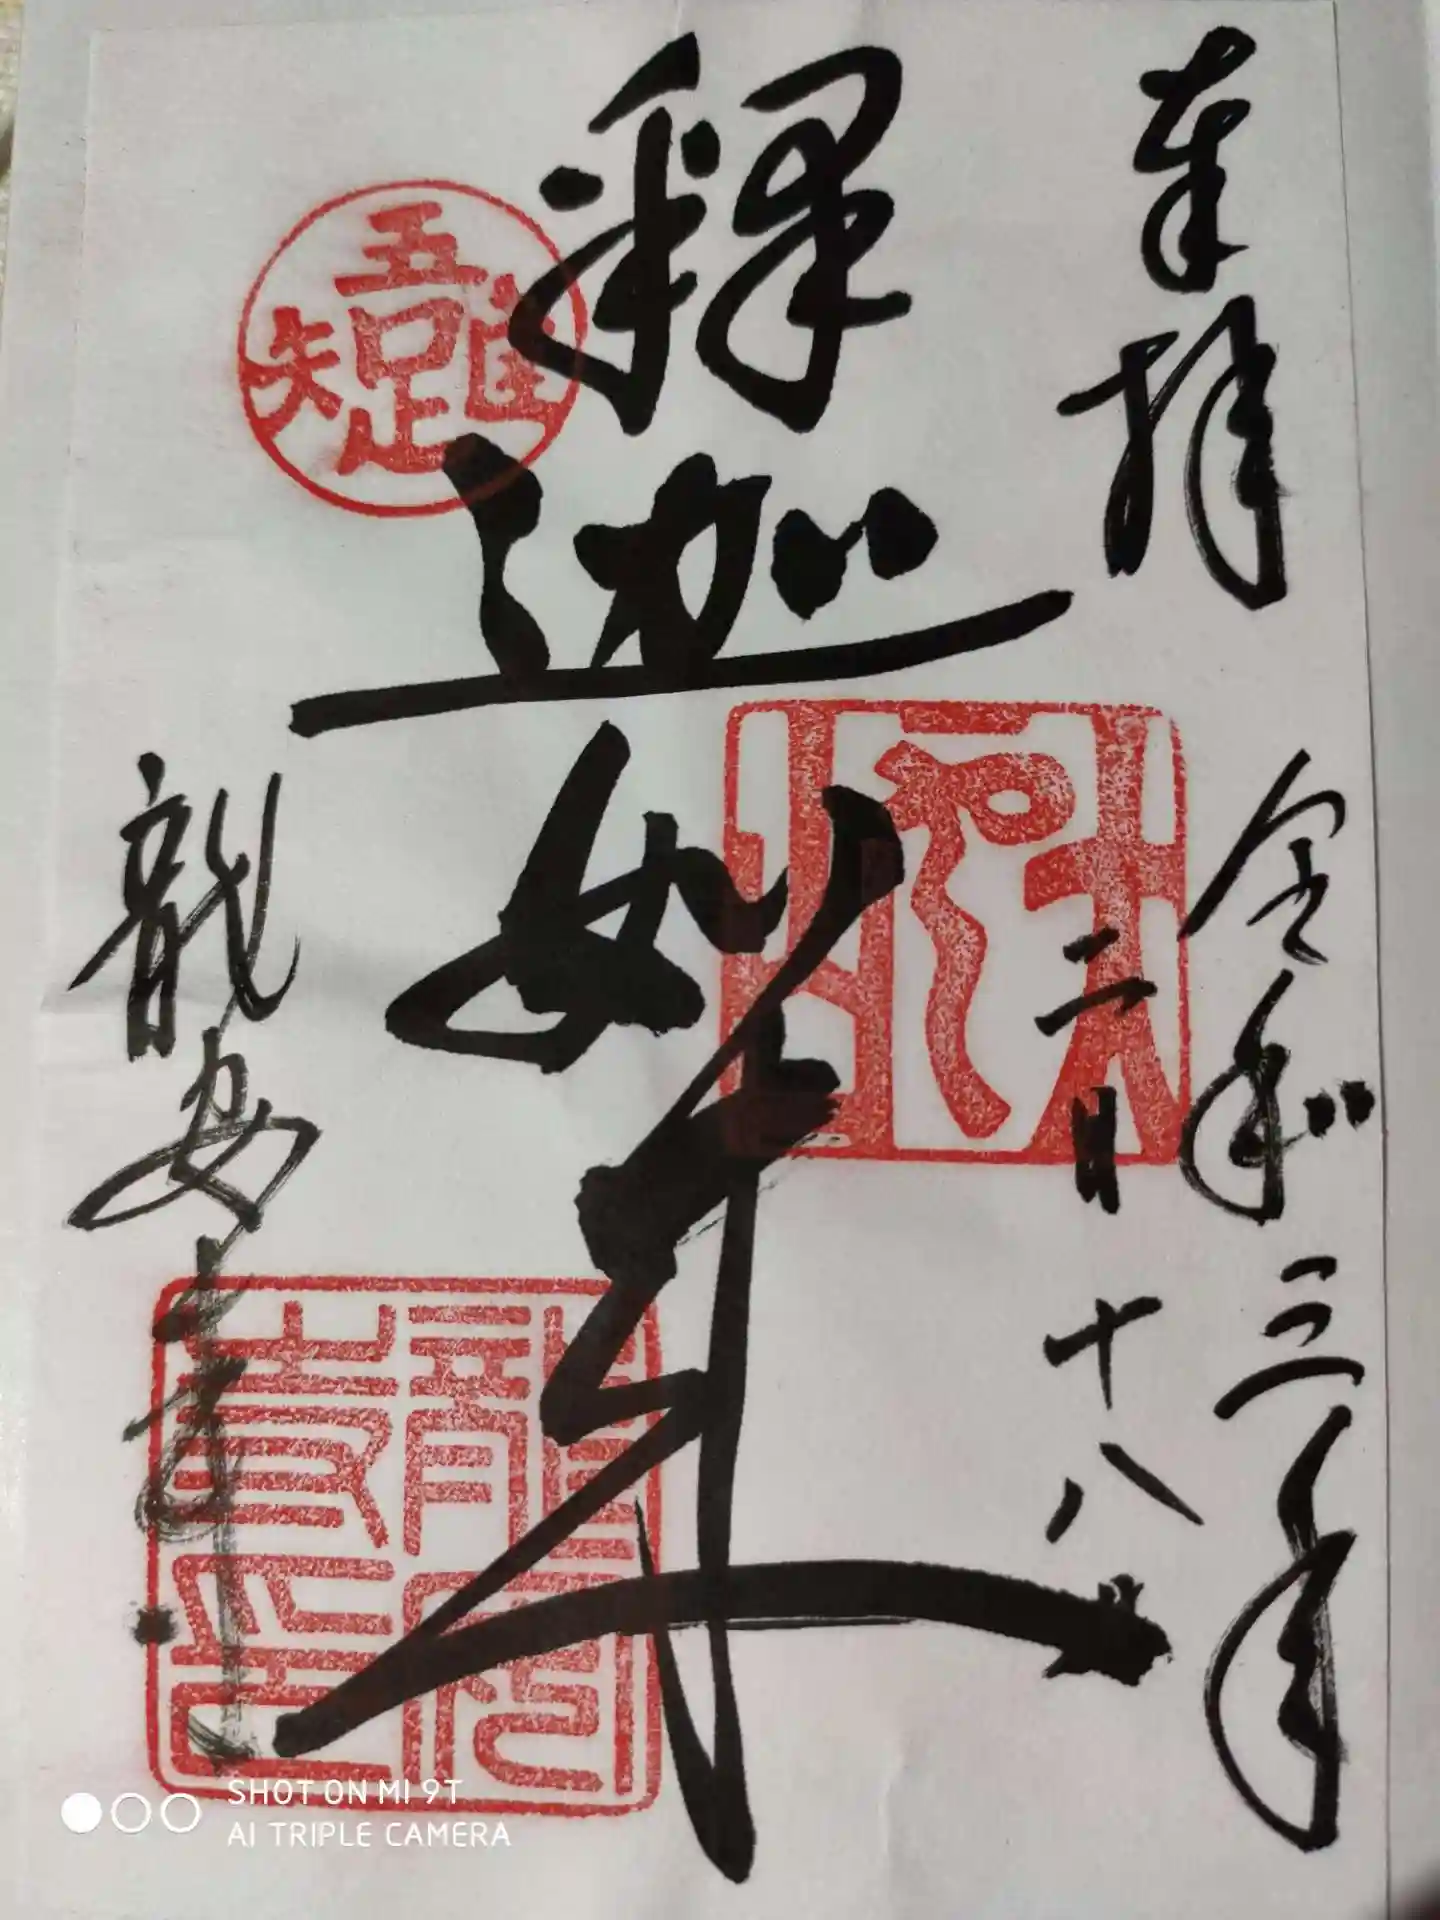 奉拝
令和三年
二月十八日
釋迦如来
吾唯足知
龍安寺
龍安
SHOT ON MI 9T
AI TRIPLE CAMERA